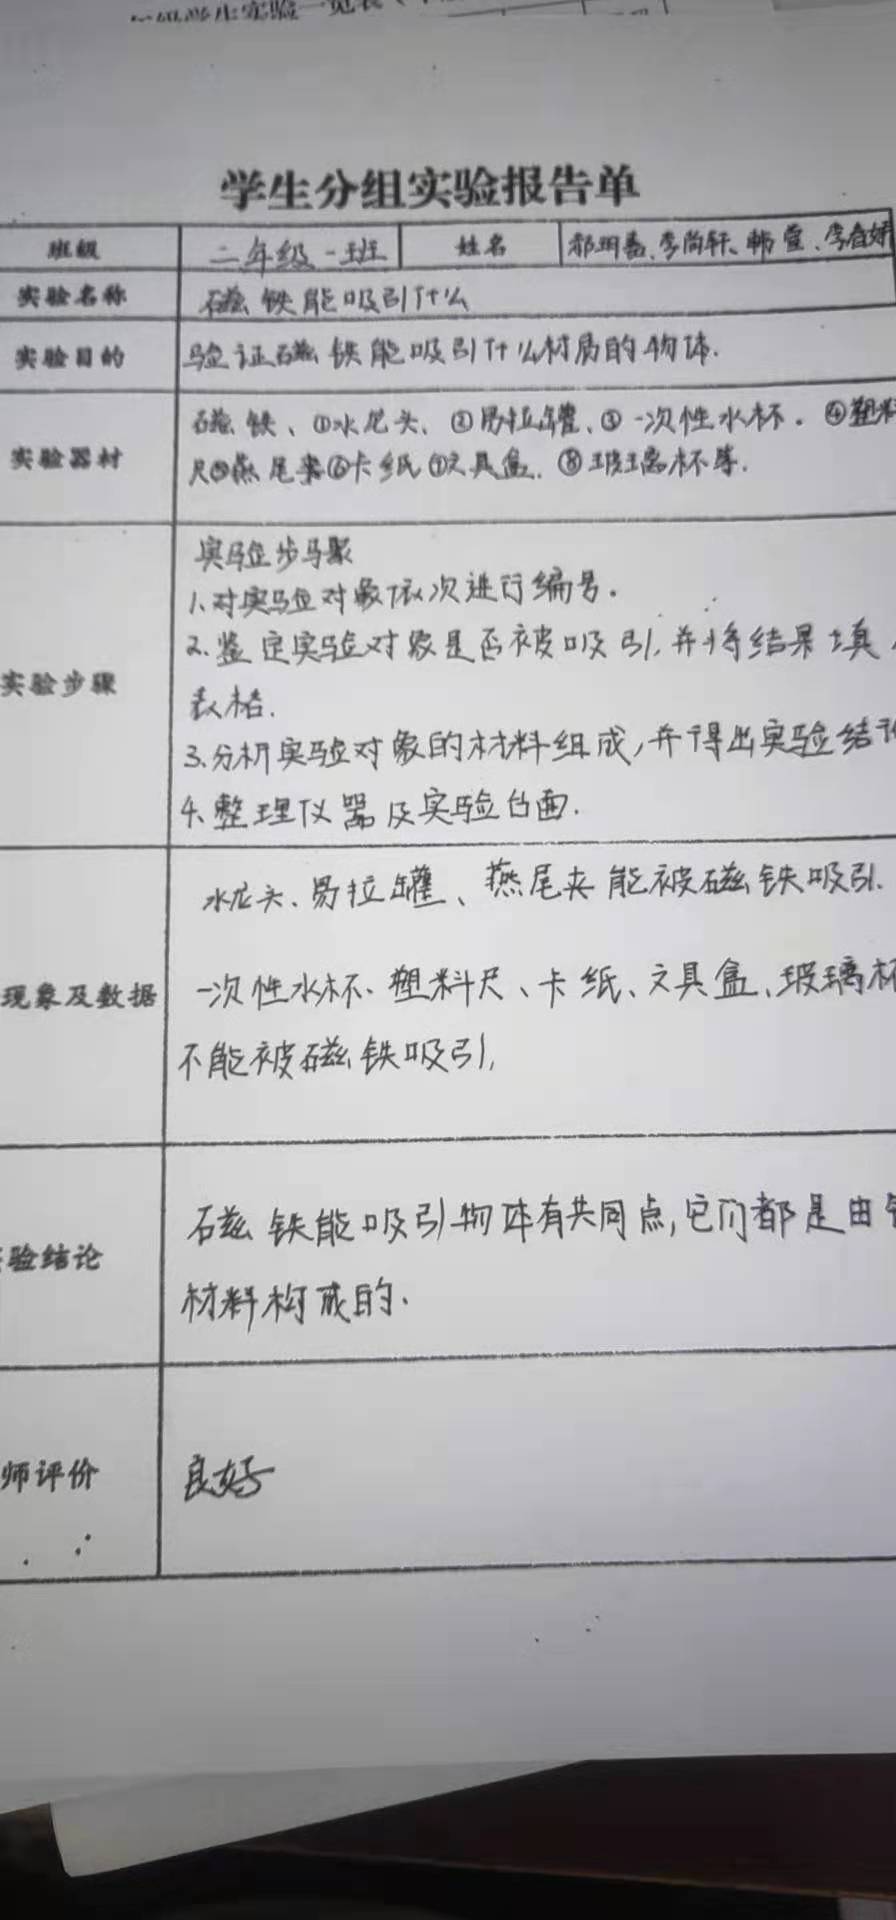 学生分组实验报告单
班级 二年级一班 姓名 李尚轩、韩萱、李春妍
实验名称 磁铁能吸引什么
实验目的 验证磁铁能吸引什么材质的物体.
实验器材 磁铁、①水龙头、②易拉罐、③一次性水杯.④塑料
尺⑤燕尾夹⑥卡纸⑦文具盒.⑧玻璃杯等.
实验步骤
1.对实验对象依次进行编号.
2.鉴定实验对象是否被吸引,并将结果填
实验步骤
表格.
3.分析实验对象的材料组成,并得出实验结
4.整理仪器及实验台面.
水龙头、易拉罐、燕尾夹能被磁铁吸引.
现象及数据 一次性水杯、塑料尺、卡纸、文具盒、玻璃杯
不能被磁铁吸引,
磁铁能吸引物体有共同点,它们都是由
验结论
材料构成的.
师评价 良好